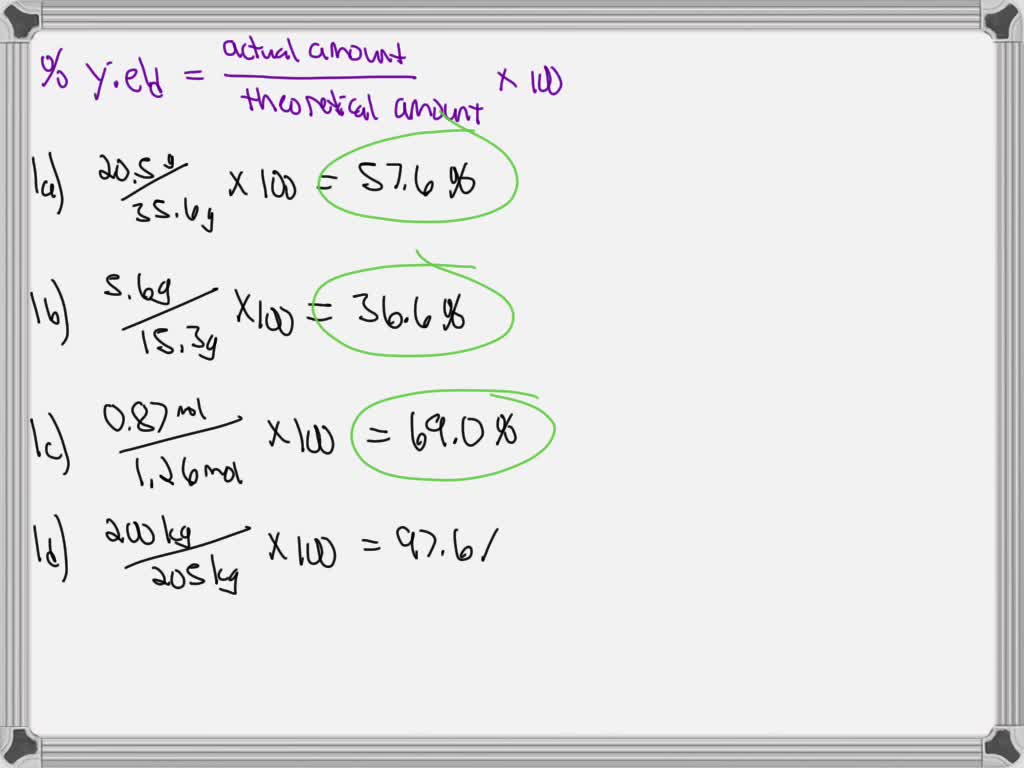 % Yield = actual amount / theoretical amount × 100
1a) 20.5 g / 35.6g × 100 = 57.6 %
1b) 5.6g / 15.3g × 100 = 36.6 %
1c) 0.87 mol / 1.26 mol × 100 = 69.0 %
1d) 200 kg / 205 kg × 100 = 97.6 /